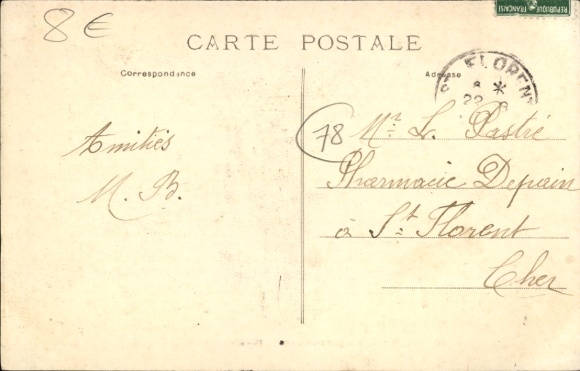 8 €
REPUBLIQUE FRANÇAISE
CARTE POSTALE
Correspondance
Adresse
ST FLORENT
8 *
22
78
Mr. L. Pastré
Pharmacie Depain
à St. Florent
Cher
Amitiés
M. B.